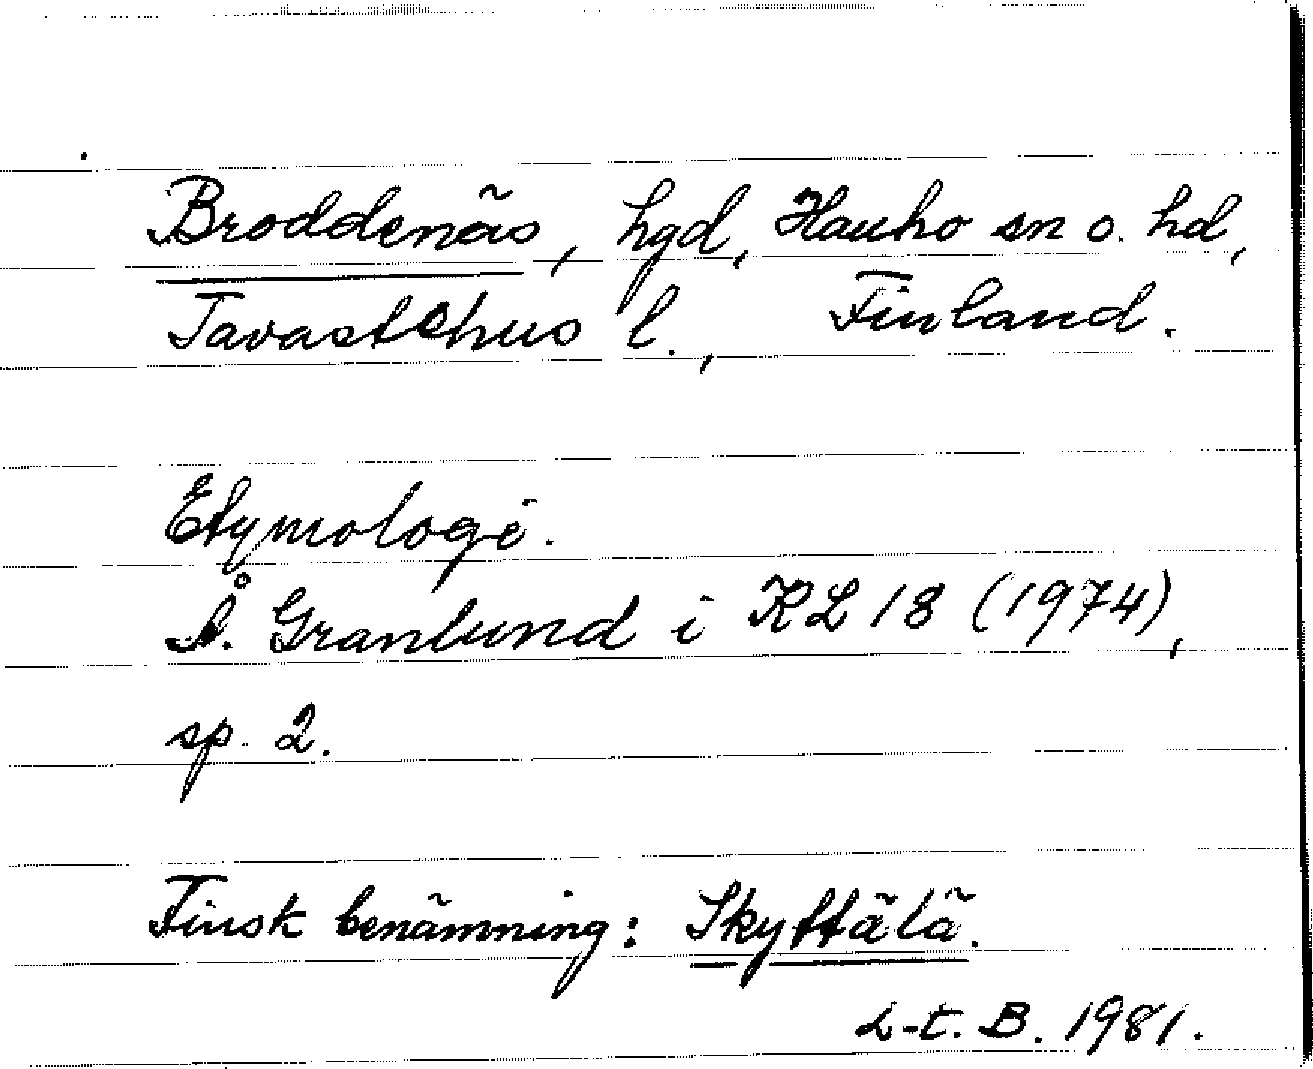 Broddenäs, hgd, Hauho sn o. hd,
Tavastehus l., Finland.
Etymologi.
Å. Granlund i KL 18 (1974),
sp. 2.
Finsk benämning: Skyttälä.
L-t. B. 1981.